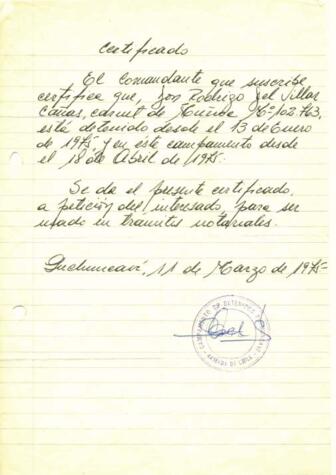 Certificado
El Comandante que suscribe,
certifica que, don Rodrigo del Villar
Cañas, carnet de Ñuñoa Nº 102.763,
está detenido desde el 13 de Enero
de 1975, y en este campamento desde
el 18 de Abril de 1975.
Se da el presente certificado,
a petición del interesado para ser
usado en trámites notariales.
Puchuncaví, 11 de Marzo de 1975-
CAMPAMENTO DE DETENIDOS
ARMADA DE CHILE